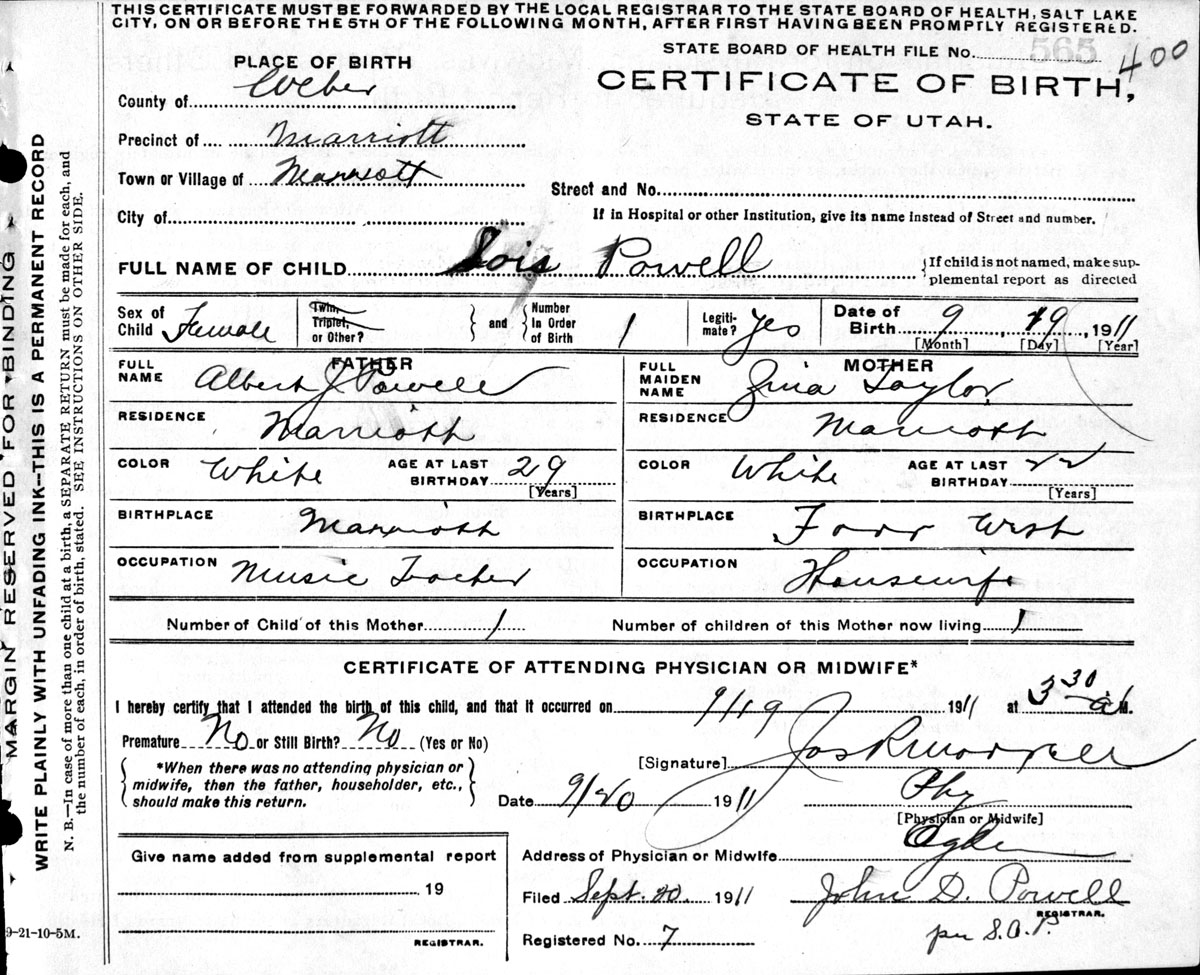 THIS CERTIFICATE MUST BE FORWARDED BY THE LOCAL REGISTRAR TO THE STATE BOARD OF HEALTH, SALT LAKE
CITY, ON OR BEFORE THE 5TH OF THE FOLLOWING MONTH, AFTER FIRST HAVING BEEN PROMPTLY REGISTERED.
STATE BOARD OF HEALTH FILE No. 400
565
PLACE OF BIRTH
CERTIFICATE OF BIRTH,
STATE OF UTAH.
County of Weber
Precinct of Marriott
Town or Village of Marriott
Street and No.
City of
If in Hospital or other Institution, give its name instead of Street and number.
FULL NAME OF CHILD Lois Powell {If child is not named, make sup-
plemental report as directed
Sex of Child Female Twin, Triplet, or Other? } and { Number in Order of Birth 1 Legiti-mate? Yes Date of Birth 9, 19, 1911
[Month] [Day] [Year]
FATHER
FULL NAME Albert J. Powell
MOTHER
FULL MAIDEN NAME Zina Taylor
RESIDENCE Marriott
RESIDENCE Marriott
COLOR White AGE AT LAST BIRTHDAY 29 [Years]
COLOR White AGE AT LAST BIRTHDAY 22 [Years]
BIRTHPLACE Marriott
BIRTHPLACE Farr West
OCCUPATION Music Teacher
OCCUPATION Housewife
Number of Child of this Mother 1 Number of children of this Mother now living 1
CERTIFICATE OF ATTENDING PHYSICIAN OR MIDWIFE*
I hereby certify that I attended the birth of this child, and that it occurred on 9/19 1911 at 3 30 a M.
Premature No or Still Birth? No (Yes or No)
*When there was no attending physician or
midwife, then the father, householder, etc.,
should make this return.
[Signature] Jos R Morrell
Date 9/20 1911 Phy
[Physician or Midwife]
Address of Physician or Midwife Ogden
Give name added from supplemental report
19
REGISTRAR.
Filed Sept. 20. 1911 John D. Powell
REGISTRAR.
Registered No. 7 per S.A.P.
9-21-10-5M.
MARGIN RESERVED FOR BINDING
WRITE PLAINLY WITH UNFADING INK--THIS IS A PERMANENT RECORD
N. B.—In case of more than one child at a birth, a SEPARATE RETURN must be made for each, and
the number of each, in order of birth, stated. SEE INSTRUCTIONS ON OTHER SIDE.